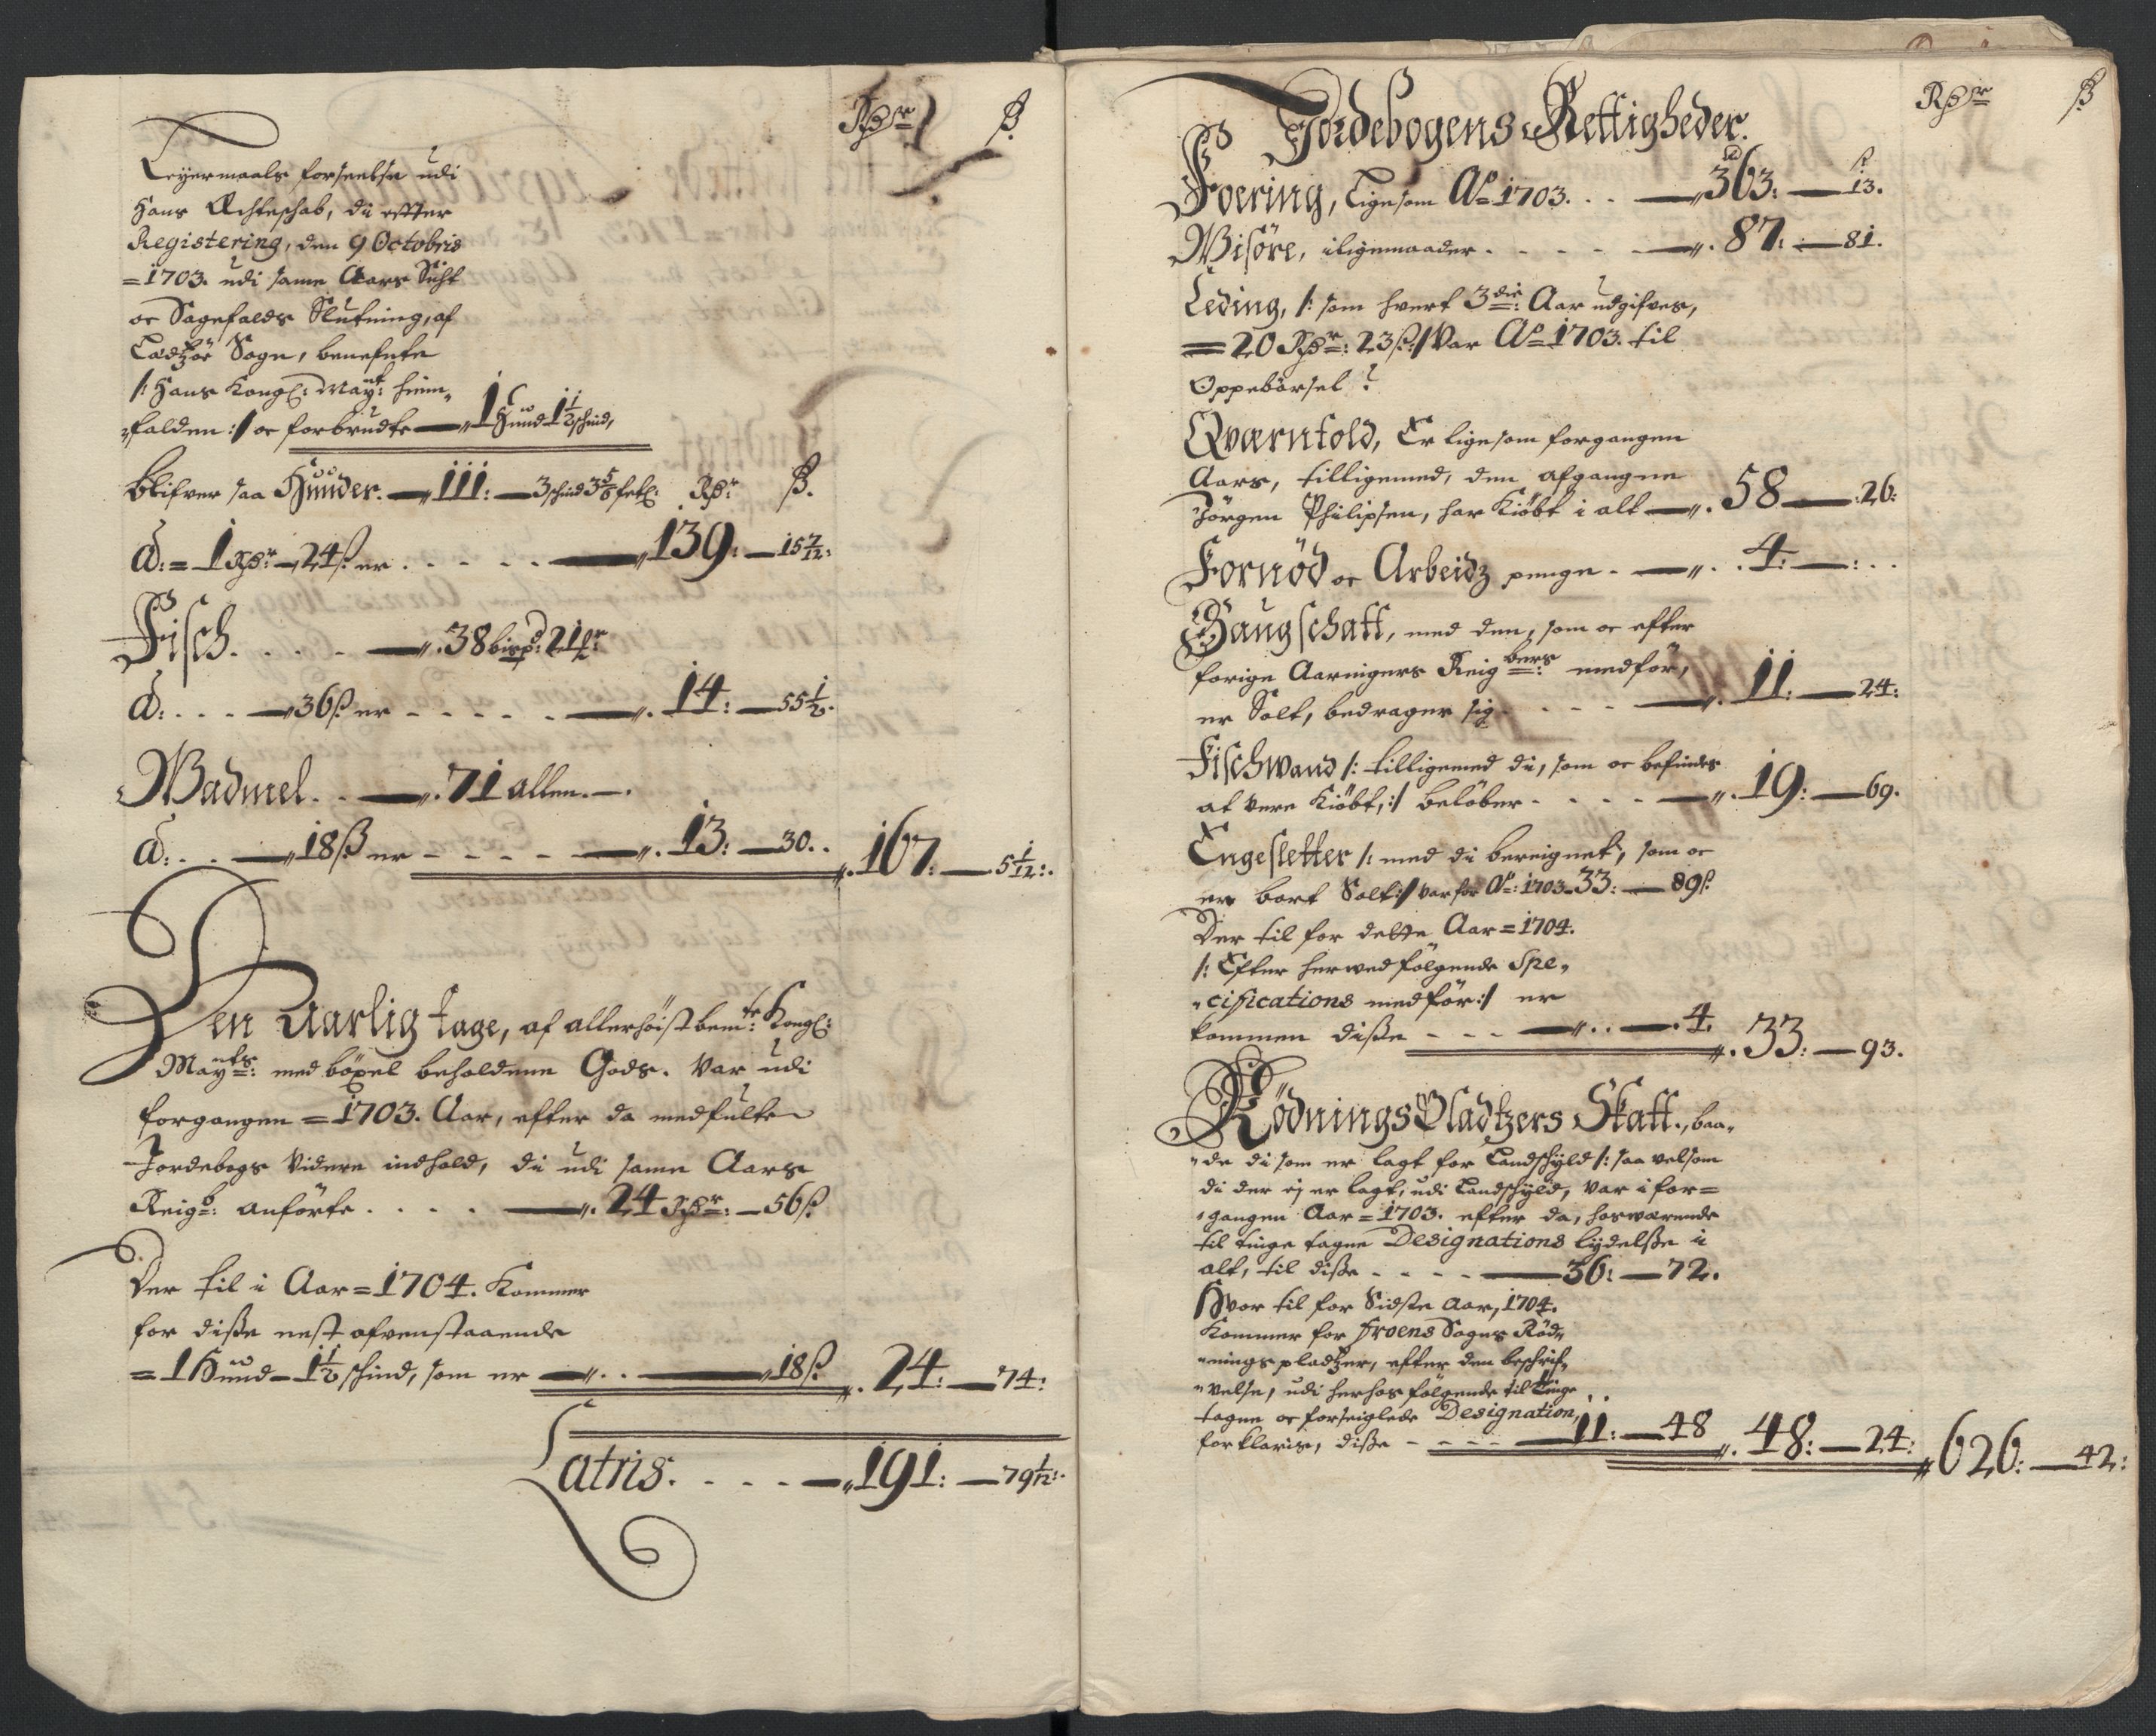 Rdr ß.
Leyermaals forseelse udi
hans Echteschab, di effter
Registering, den 9 Octobris
=1703. udi same Aars Sicht
oc Sagefalds Slutning, af
Sogn, benefnte
/: Hans Kongl: Mayt: hiem„
„falden :/ oc forbrudte — „1 Hund 1½ schind,
Blifver saa Hunder. — „111: — 3 schind 3⅚ fetl: Rdr: ß.
â: = 1 Rdr: — 24 ß. er . . . . . — „139: — 15 7/12:
Fisch. . . . . — „. 38 bispd: 21 pr:
â: . . . — „36 ß er - - - - - — „. 14: — 55½.
Wadmel. . . — „. 71 allen. —.
â: . . — „18 ß er - - - - - — „. 13: — 30. . „. 167: — 5 1/12:.
Den Aarlig tage, af allerhöist bemte: Kongl:
Mayts: med böxel beholdene Gods. Var udi
forgangen = 1703. Aar, efter da medfulte
Jordebogs Videre indhold, di udi same Aars
Reigb: anförte . . . . — „. 24 Rdr: — 56 ß
Der til i Aar = 1704. Kommer
for disse nest ofvenstaaende
= 1 Hund — 1½ schind, som er — „. . — „18 ß „. 24: — 74:
Latris. . - - - — „. 191: — 79 1/12:.
Rdr ß
Jordebogens Rettigheder.
Foering, Ligesom Ao 1703. . . — „363: — 13.
Wisöre, iligemaader . - - - - — „. 87: — 81.
Leding, /: som hvert 3die: Aar udgifves,
= 20 Rdr: 23 ß :/ Var Ao 1703. til
Oppebörsel.
Qværntold, Er ligesom forgangen
Aars, tilligemed, den afgangne
Jörgen Philipsen, har Kiöbt i alt — „. 58 — : 26:
Fornöd oc Arbeidz penge - — „. . 4: — : . .
Gaugschatt, med den, som oc efter
forige Aaringers Reigbers: medför,
er Solt, bedrager sig . - - - — „. 11: — 24:
Fischwand /: tilligemed di, som oc befindes
at vere Kiöbt, :/ belöber . - - - — „. 19: — 69.
Engesletter /: med di bereignet, som oc
er bort Solt :/ var for Ao: 1703 — 33: — 89 ß
Der til for dette Aar = 1704.
/: Efter herved fölgende Spe„
„cifications medför :/ er
kommen disse - - - — „. . — . 4. „. 33: — 93.
Rödnings Pladtzers Skatt., baa„
„de di som er lagt for Landschyld /: saa velsom
di der ej er lagt, udi Landschyld, var i for=
„gangen Aar = 1703. efter da, hosværende
til tinge tagne Designations lydelsse i
alt, til disse - - - - — 36: — 72.
Hvor til for Sidste Aar, 1704.
Kommer for Froens Sogns Röd„
„nings pladtzer, efter den beschrif„
„velse, udi herhos fölgende til Tinge
tagne oc forseiglede Designation,
forklaris, disse - - - - — 11: — 48 „. 48: — 24: „626: — 42: